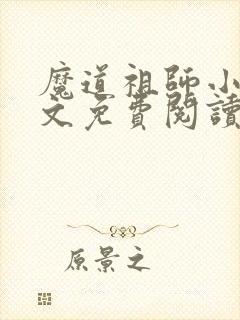 魔道祖師小
文免費閱讀
原景之